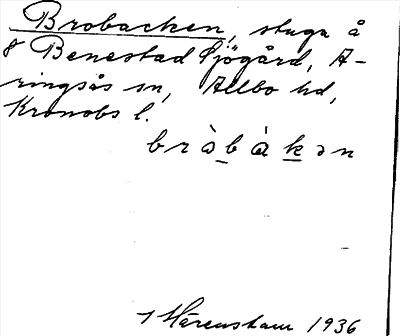 Brobacken, stuga å
Benestad Sjögård, A-
ringsås sn, Allbo hd,
Kronobs l.
bròbákən
Härenstam 1936